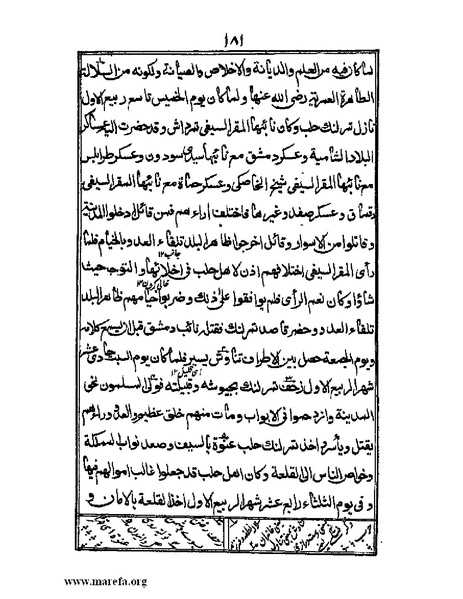 ١٨١
لما كان فيه من العلم والديانة والاخلاص والصيانة ولكونه من السلالة
الطاهرة العمرية رضى الله عنها ولما كان يوم الخميس تاسع ربيع الاول
نازل تمرلنك حلب وكان نائبها المقر السيفى تمرداش وقد حضرت اليه عساكر
البلاد الشامية وعسكر دمشق مع نائبها سيدى سودون وعسكر طرابلس
مع نائبها المقر السيفى شيخ الخاصكى وعسكر حماة مع نائبها المقر السيفى
دقماق وعسكر صفد وغيرها فاختلفت اراءهم فمن قائل ادخلوا المدينة
وقاتلوا من الاسوار وقائل اخرجوا ظاهر البلد تلقاء العدو بالخيام فلما
رأى المقر السيفى اختلافهم اذن لاهل حلب فى اخلائها والتوجه حيث
شاؤا وكان نعم الرأى فلم يوافقوا على ذلك وضربوا خيامهم ظاهر البلد
تلقاء العدو وحضر قاصد تمرلنك فقتله نائب دمشق قبل ان يسمع كلامه
ويوم الجمعة حصل بين الاطراف تناوش يسير فلما كان يوم السبت حادى عشر
شهر ربيع الاول زحف تمرلنك بجيوشه وفيلته فولى المسلمون نحو
المدينة وازدحموا فى الابواب ومات منهم خلق عظيم والعدو وراءهم
يقتل ويأسر واخذ تمرلنك حلب عنوة بالسيف وصعد نواب المملكة
وخواص الناس الى القلعة وكان اهل حلب قد جعلوا غالب اموالهم فيها
وفى يوم الثلثاء رابع عشر شهر ربيع الاول اخذ القلعة بالامان و
www.marefa.org